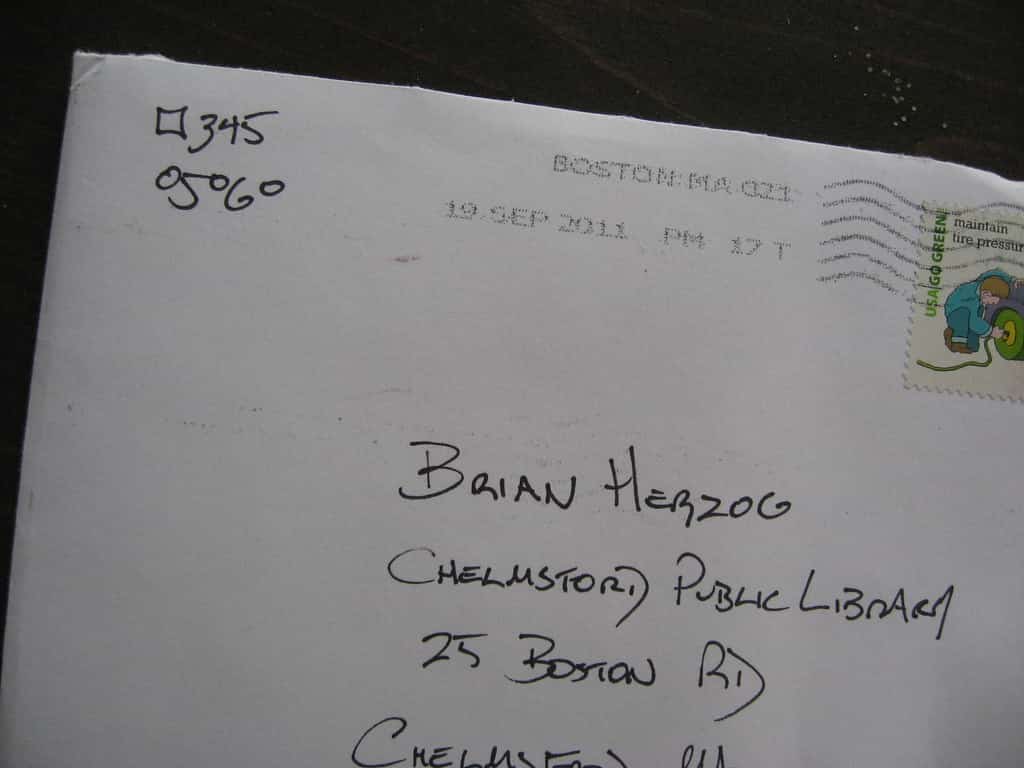 □345
05060
BOSTON MA 021
19 SEP 2011 PM 17 T
USA GO GREEN
maintain
tire pressur
BRIAN HERZOG
CHELMSFORD PUBLIC LIBRARY
25 BOSTON RD
CHELMSFORD MA